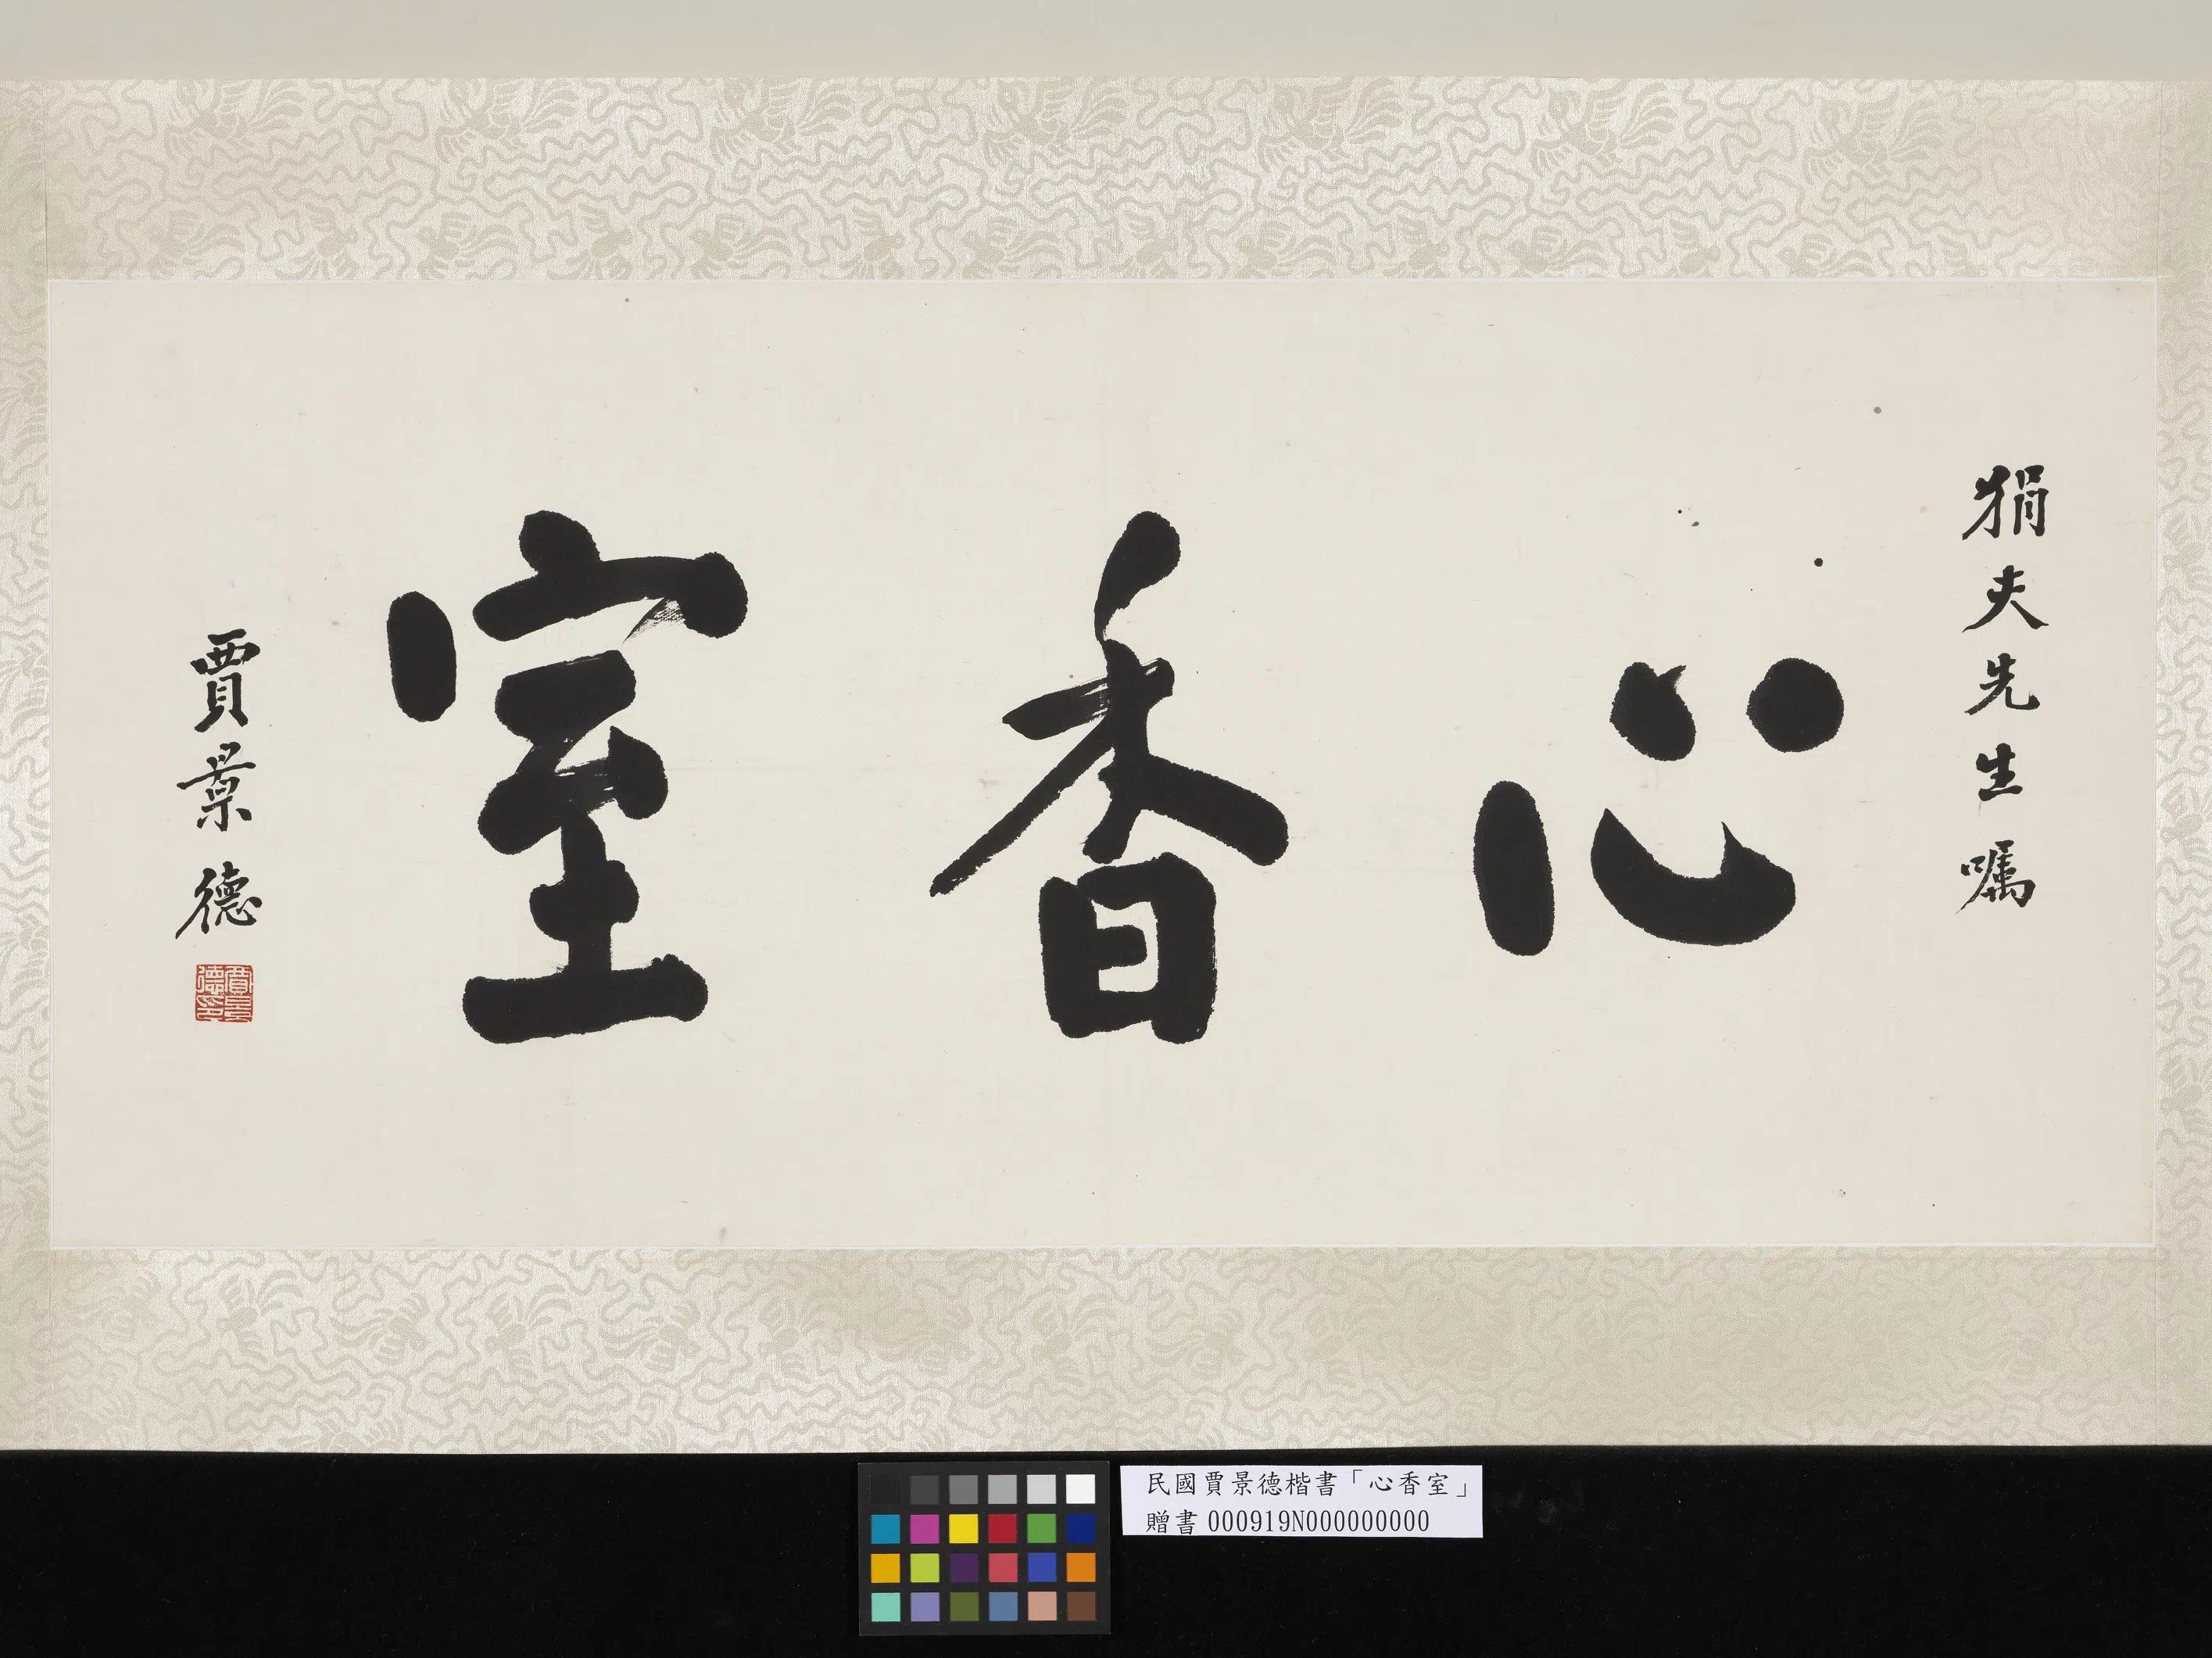 狷夫先生囑
心香室
賈景德
賈景德印
民國賈景德楷書「心香室」
贈書000919N000000000